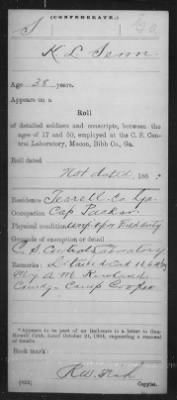 (CONFEDERATE.)
S Ga
K L Senn
Age 38 years.
Appears on a
Roll
of detailed soldiers and conscripts, between the
ages of 17 and 50, employed at the C. S. Cen-
tral Laboratory, Macon, Bibb Co., Ga.
Roll dated
Not dated, 186 .
Residence Terrell Co Ga.
Occupation Cap Packer
Physical condition unfit for Field duty
Grounds of exemption or detail
C. S. Central Laboratory
Remarks: Detailed Oct
by A. M. Rowland
Comdg Camp Cooper
*Appears to be part of an inclosure to a letter to Gen-
eral Cobb, dated October 21, 1864, requesting a renewal
of details.
Book mark:
R W
(655) Copyist.